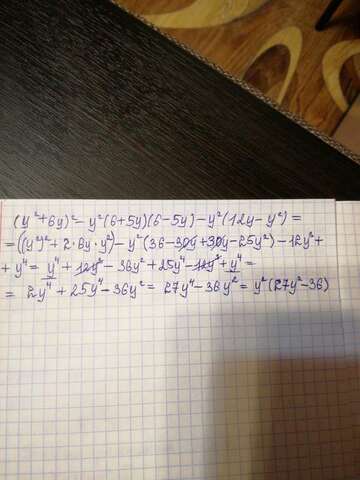 (y²+6y)²-y²(6+5y)(6-5y)-y²(12y-y²)=
=((y²)²+2·6y·y²)-y²(36-30y+30y-25y²)-12y³+
+y⁴=y⁴+12y³-36y²+25y⁴-12y³+y⁴=
=2y⁴+25y⁴-36y²=27y⁴-36y²=y²(27y²-36)